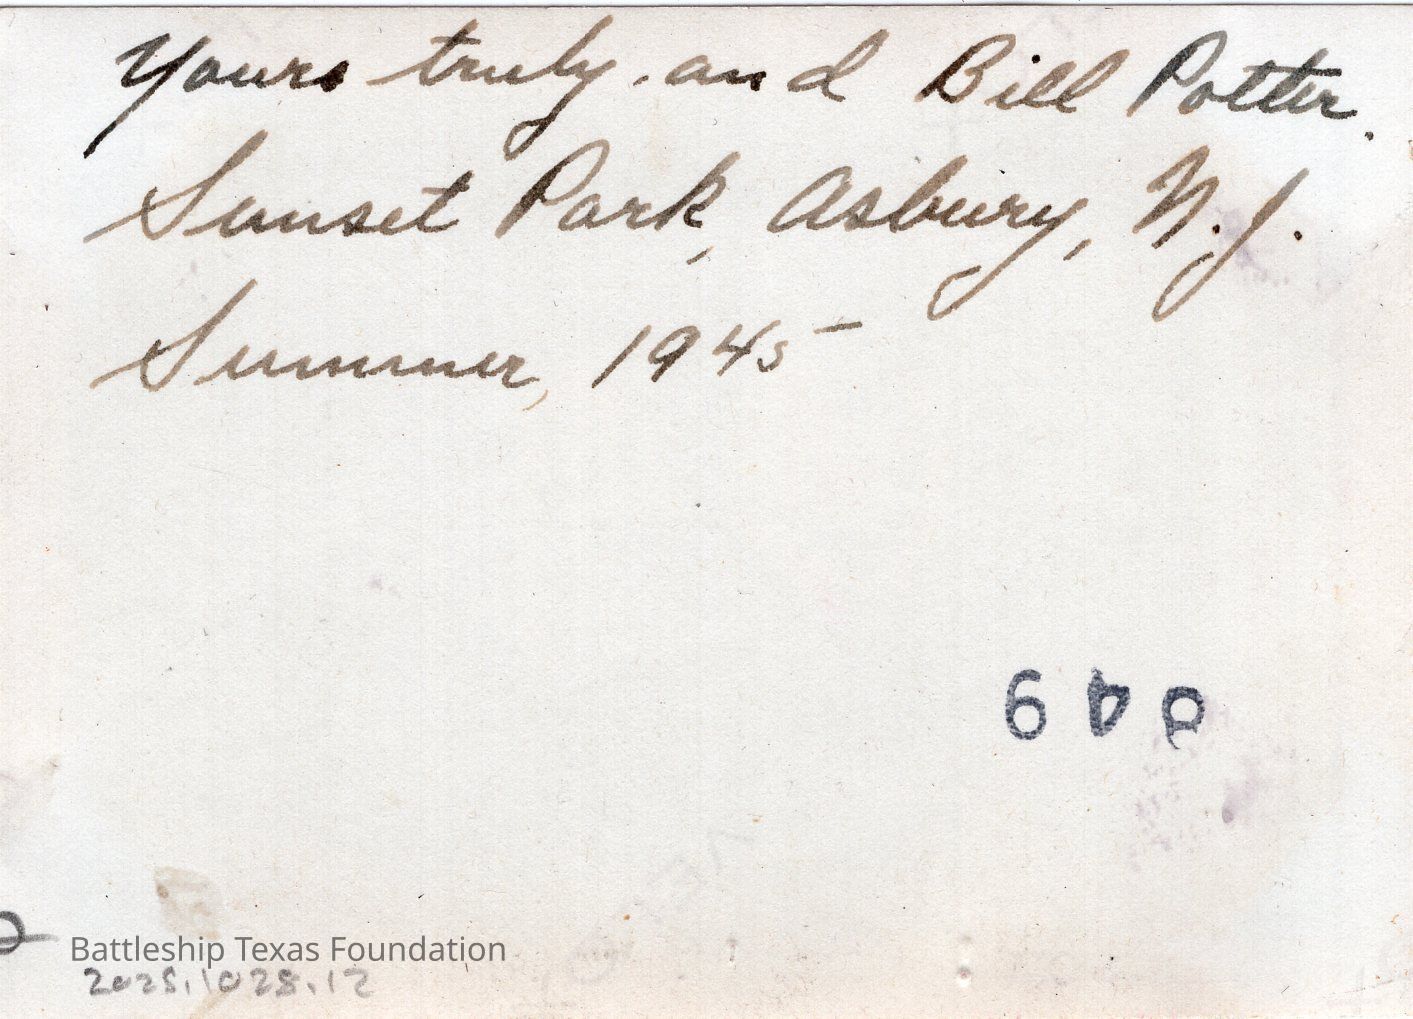 Yours truly and Bill Potter.
Sunset Park, Asbury, N.J.
Summer, 1945
Battleship Texas Foundation
2025.1028.12